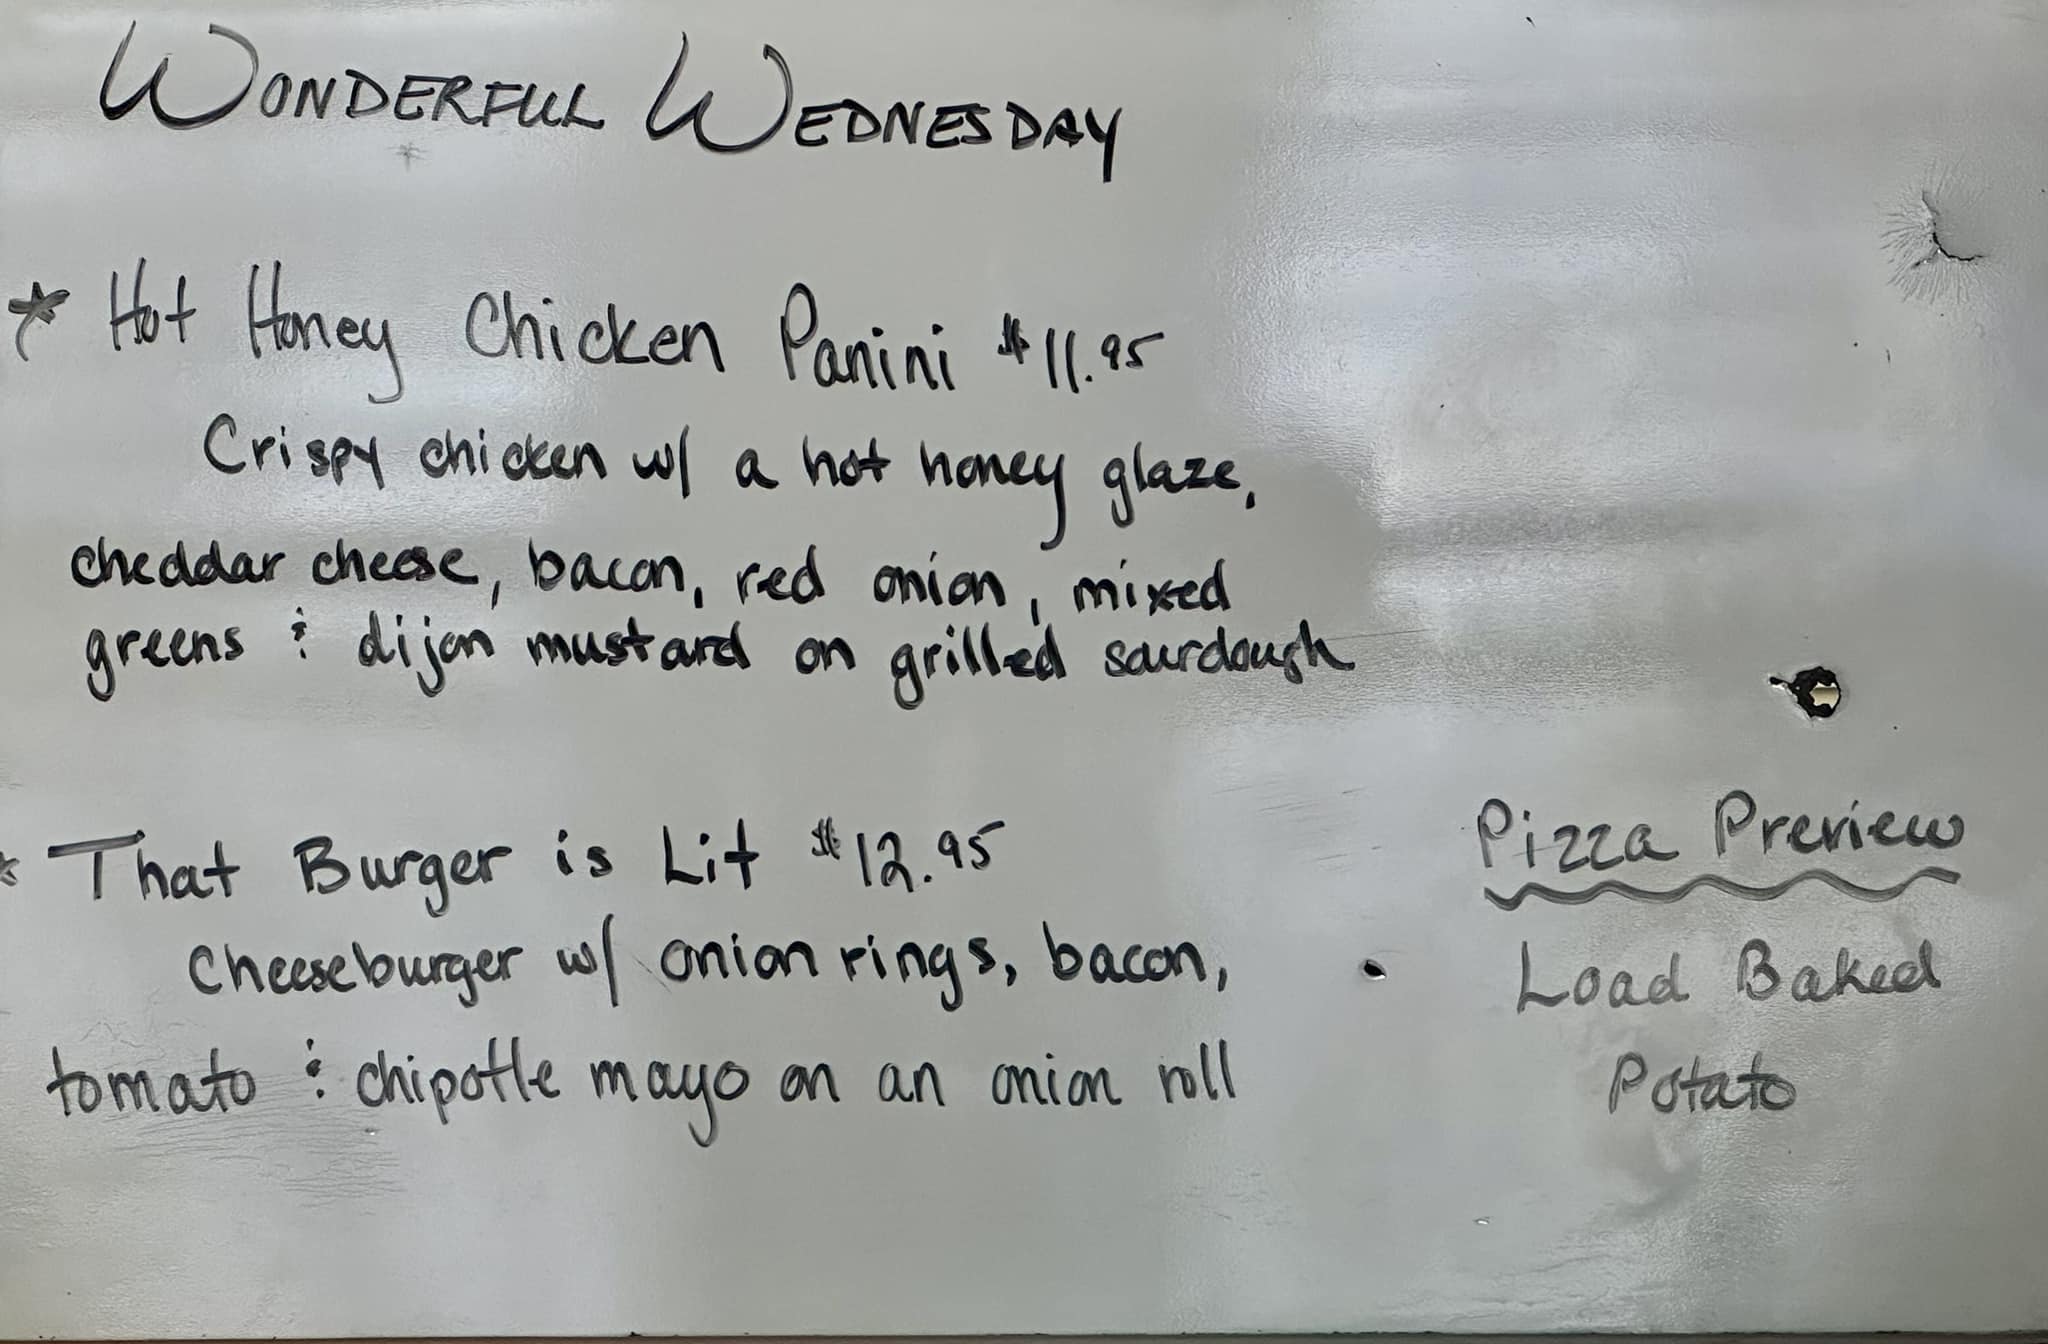 WONDERFUL WEDNESDAY
* Hot Honey Chicken Panini $11.95
Crispy chicken w/ a hot honey glaze,
cheddar cheese, bacon, red onion, mixed
greens & dijon mustard on grilled sourdough
* That Burger is Lit $12.95
Cheeseburger w/ onion rings, bacon,
tomato & chipotle mayo on an onion roll
Pizza Preview
Load Baked
Potato